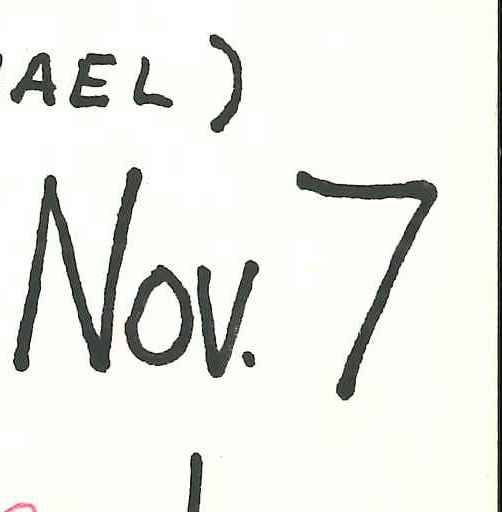 AEL)
Nov. 7